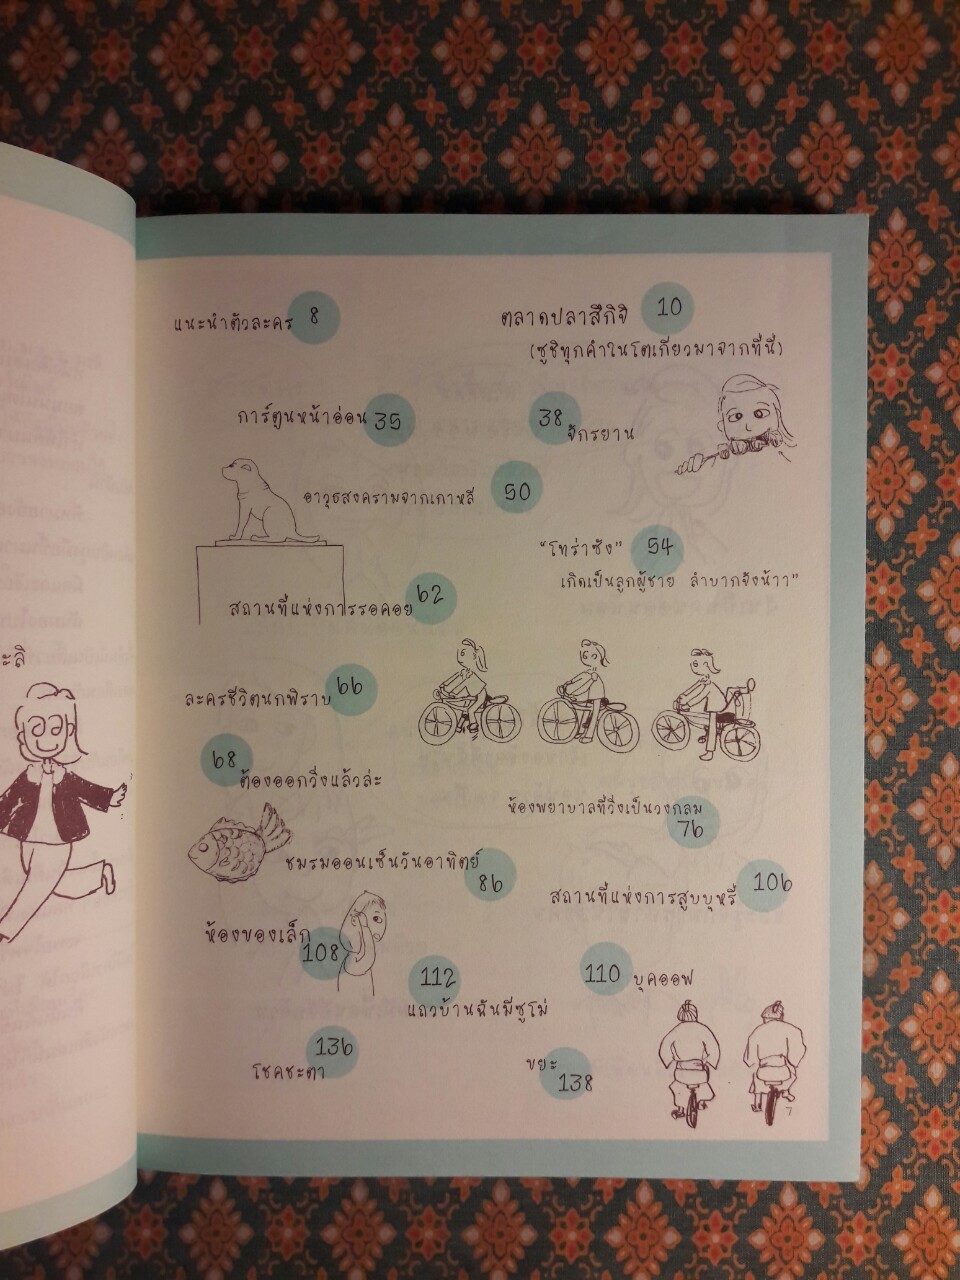 แนะนำตัวละคร 8
ตลาดปลาสึกิจิ 10
(ซูชิทุกคำในโตเกียวมาจากที่นี่)
การ์ตูนหน้าอ่อน 35
38 จักรยาน
อาวุธสงครามจากเกาหลี 50
"โทร่าซัง" 54
เกิดเป็นลูกผู้ชาย ลำบากจังน้าา"
สถานที่แห่งการรอคอย 62
ละครชีวิตนกพิราบ 66
68
ต้องออกวิ่งแล้วล่ะ
ห้องพยาบาลที่วิ่งเป็นวงกลม
76
ชมรมออนเซ็นวันอาทิตย์
86
สถานที่แห่งการสูบบุหรี่ 106
ห้องของเล็ก
108
110 บุคออฟ
112
แถวบ้านฉันมีซูโม่
136
โชคชะตา
ขยะ
138
7
ะลิ